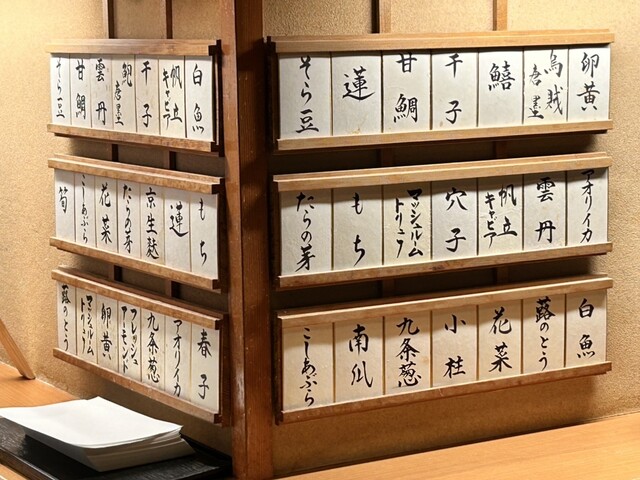 卵黄
烏賊
唐墨
鱚
干子
甘鯛
蓮
そら豆
アオリイカ
雲丹
帆立
キャビア
穴子
マッシュルーム
トリュフ
もち
たらの芽
白魚
蕗のとう
花菜
小柱
九条葱
南瓜
こしあぶら
白魚
帆立
キャビア
干子
唐墨
雲丹
甘鯛
そら豆
もち
蓮
京生麩
たらの芽
花菜
こしあぶら
筍
春子
アオリイカ
九条葱
フレッシュ
アーモンド
卵黄
マッシュルーム
トリュフ
蕗のとう